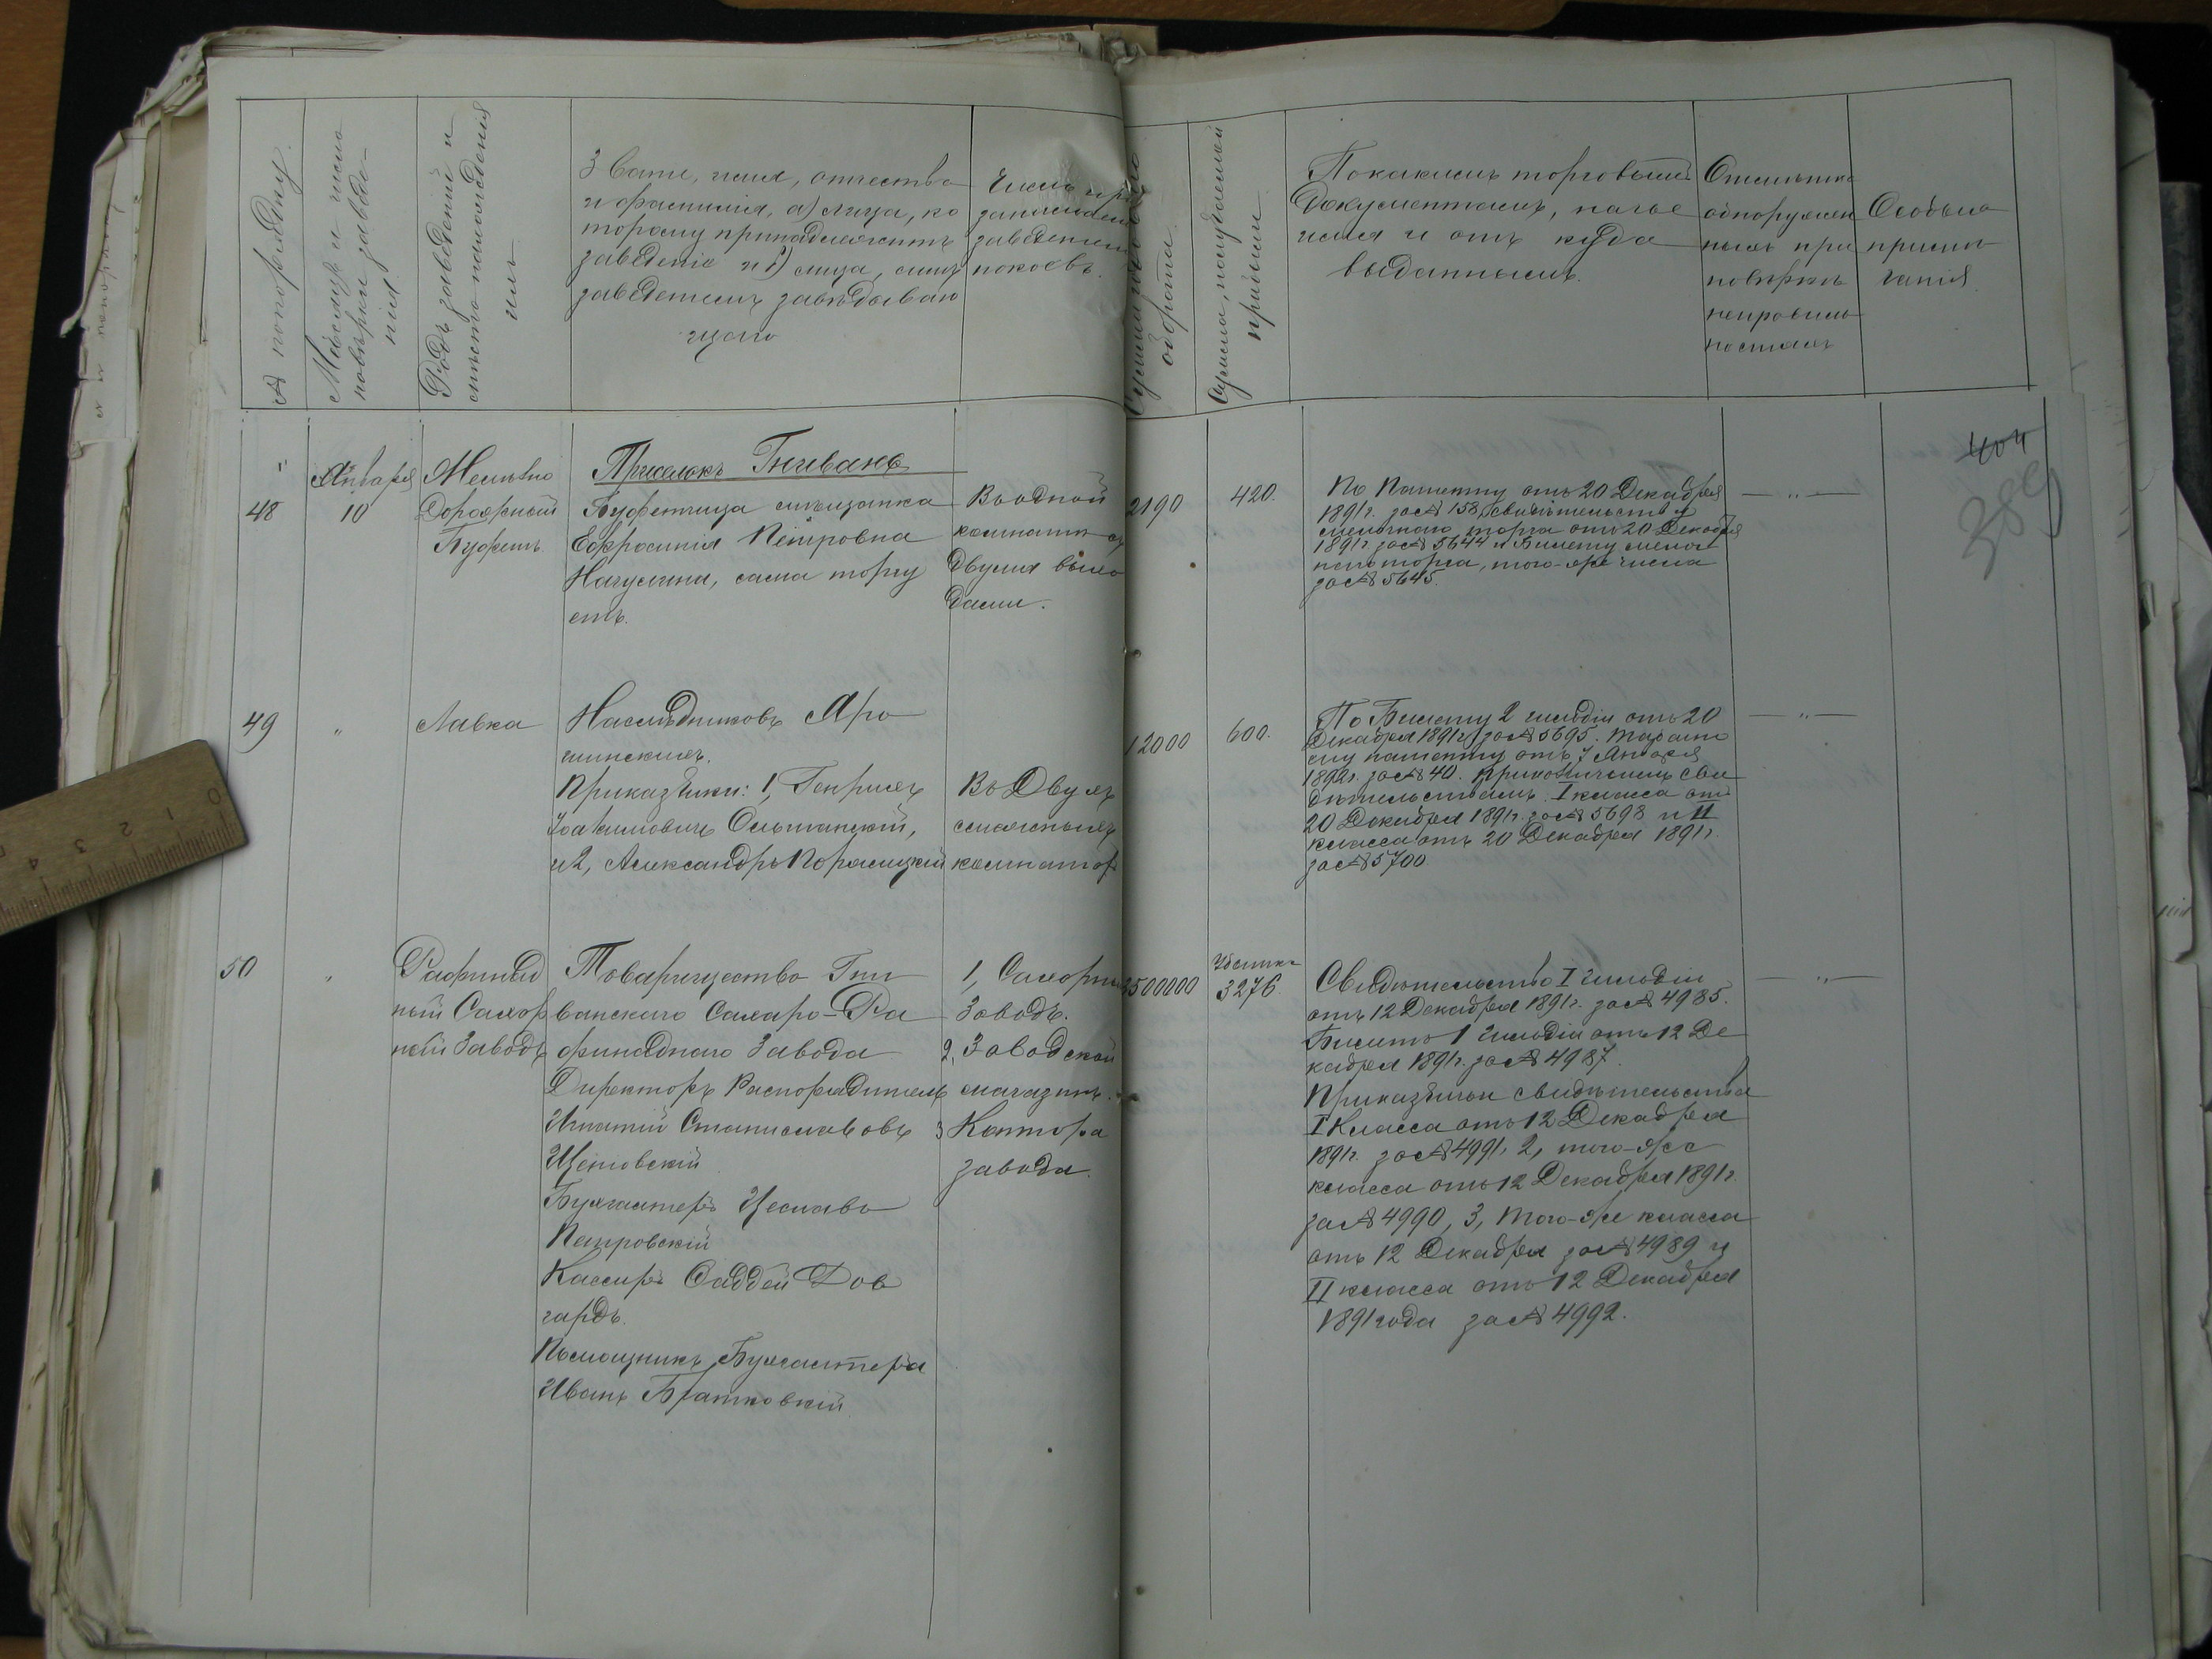 № по порядку.
Мѣсяцъ и число
повѣрки заведе-
нія
Родъ заведенія и
мѣсто нахожденія
ихъ
Званіе, имя, отчество
и фамилія, а) лица, ко
торому принадлежитъ
заведеніе и б) лица, симъ
заведеніемъ завѣдываю
щаго
Число
занимаем
заведеніем
покоевъ.
оборота.
Сумма, получаемой
прибыли
По какимъ торговымъ
документамъ, на чье
имя и отъ куда
выданнымъ.
Отмѣтка
обнаружен
ныхъ при
повѣркѣ
неправиль
ностяхъ
Особыя
примѣ
чанія.
404
389
Приселокъ Гнивань
48
Января
10
Мелочно
Дорожный
Буфетъ.
Буфетчица мѣщанка
Евфросинія Петровна
сама торгу
етъ.
Въ одной
комнатѣ съ
двумя выхо
дами.
2190
420.
По Патенту отъ 20 Декабря
1891 г. за № 158, свидѣтельству
мелочнаго торга отъ 20 Декабря
1891 г. за № 5644 и Билету мелоч
наго торга, того-же числа
за № 5645.
— " —
49
"
Лавка
Наслѣдниковъ Яро
шинскихъ.
Приказчики: 1, Генрихъ
Іоакимовичъ Ольшанскій,
и 2, Александръ
Въ двухъ
смежныхъ
комнатах
12000
600.
По Билету 2 гильдіи отъ 20
Декабря 1891 г. за № 5695. Табачно
му патенту отъ 7 Января
1892 г. за № 40. Прикащичьимъ сви
дѣтельствамъ I класса отъ
20 Декабря 1891 г. за № 5698 и II
класса отъ 20 Декабря 1891 г.
за № 5700
— " —
50
"
Рафинад
ный Сахар
ный Заводъ
Товарищество Гни
ванскаго Сахаро-Ра
финаднаго Завода
Директоръ Распорядитель
Игнатій Станиславовъ
Щеніовскій
Бухгалтеръ Чеславъ
Петровскій
Кассиръ Фаддей Дов
гардъ.
Помощникъ Бухгалтера
Иванъ Братковскій
1, Сахарны
Заводъ.
2, Заводской
магазинъ.
3 Контора
завода.
3500000
Убытка
3276
Свидѣтельство I гильдіи
отъ 12 Декабря 1891 г. за № 4985.
Билетъ 1 гильдіи отъ 12 Де
кабря 1891 г. за № 4987.
Приказчичьи свидѣтельства
I класса отъ 12 Декабря
1891 г. за № 4991, 2, того-же
класса отъ 12 Декабря 1891 г.
за № 4990, 3, того-же класса
отъ 12 Декабря за № 4989 и
II класса отъ 12 Декабря
1891 года за № 4992.
— " —
0 1 2 3 4